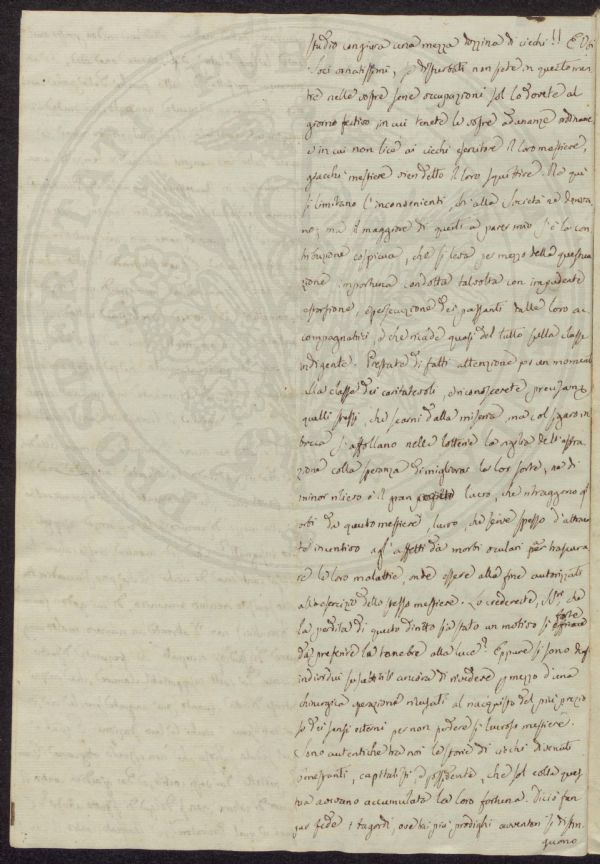 studio congiura una mezza dozzina di ciechi!! E Voi
Soci ornatissimi, se disturbati non siete in questo men
tre nelle vostre serie occupazioni sol lo dovete al
giorno festivo in cui tenete le vostre adunanze ordinarie
e in cui non lice ai ciechi esercitare il loro mestiere,
giacchè mestiere vien detto il loro questuare. Nè qui
si limitano l'inconvenienti, che alla Società ne deriva
no; ma il maggiore di questi a parer mio si è la con
tribuzione cospicua, che si leva per mezzo della questua
zione importuna condotta talvolta con impudente
estorsione, e persecuzione dei passanti dalle loro ac
compagnatrici, e che ricade quasi del tutto sulla classe
indigente. Prestate di fatti attenzione per un momento
alla classe dei caritatevoli, e riconoscerete
quelli stessi, che scarni dalla miseria, ma col sigaro in
bocca si affollano nelle lotterie la vigilia dell'estra
zione colla speranza di migliorar la lor sorte, nè di
minor rilievo è il gran lucro, che ritraggono gli
orbi da questo mestiere, lucro, che serve spesso d'attraen
te incentivo agl'affetti da morbi oculari per trascura
re le loro malattie, onde essere alla fine autorizzati
all'esercizio dello stesso mestiere. Lo credereste, che
la perdita di questo diritto sia stato un motivo sì forte
da preferire le tenebre alla luce? Eppure si sono degl'
individui suscettibili ancora di rivedere per mezzo d'una
chirurgica operazione ricusati al riacquisto del più prezio
so dei sensi esterni per non perdere sì lucroso mestiere.
Sono autentiche tra noi le storie di ciechi divenuti
benestanti, capitalisti e possidenti, che sol colla ques
tua avevano accumulato la loro fortuna. Di ciò fan
no fede i tagordi, ove tai più prodighi avventori si distin
guono